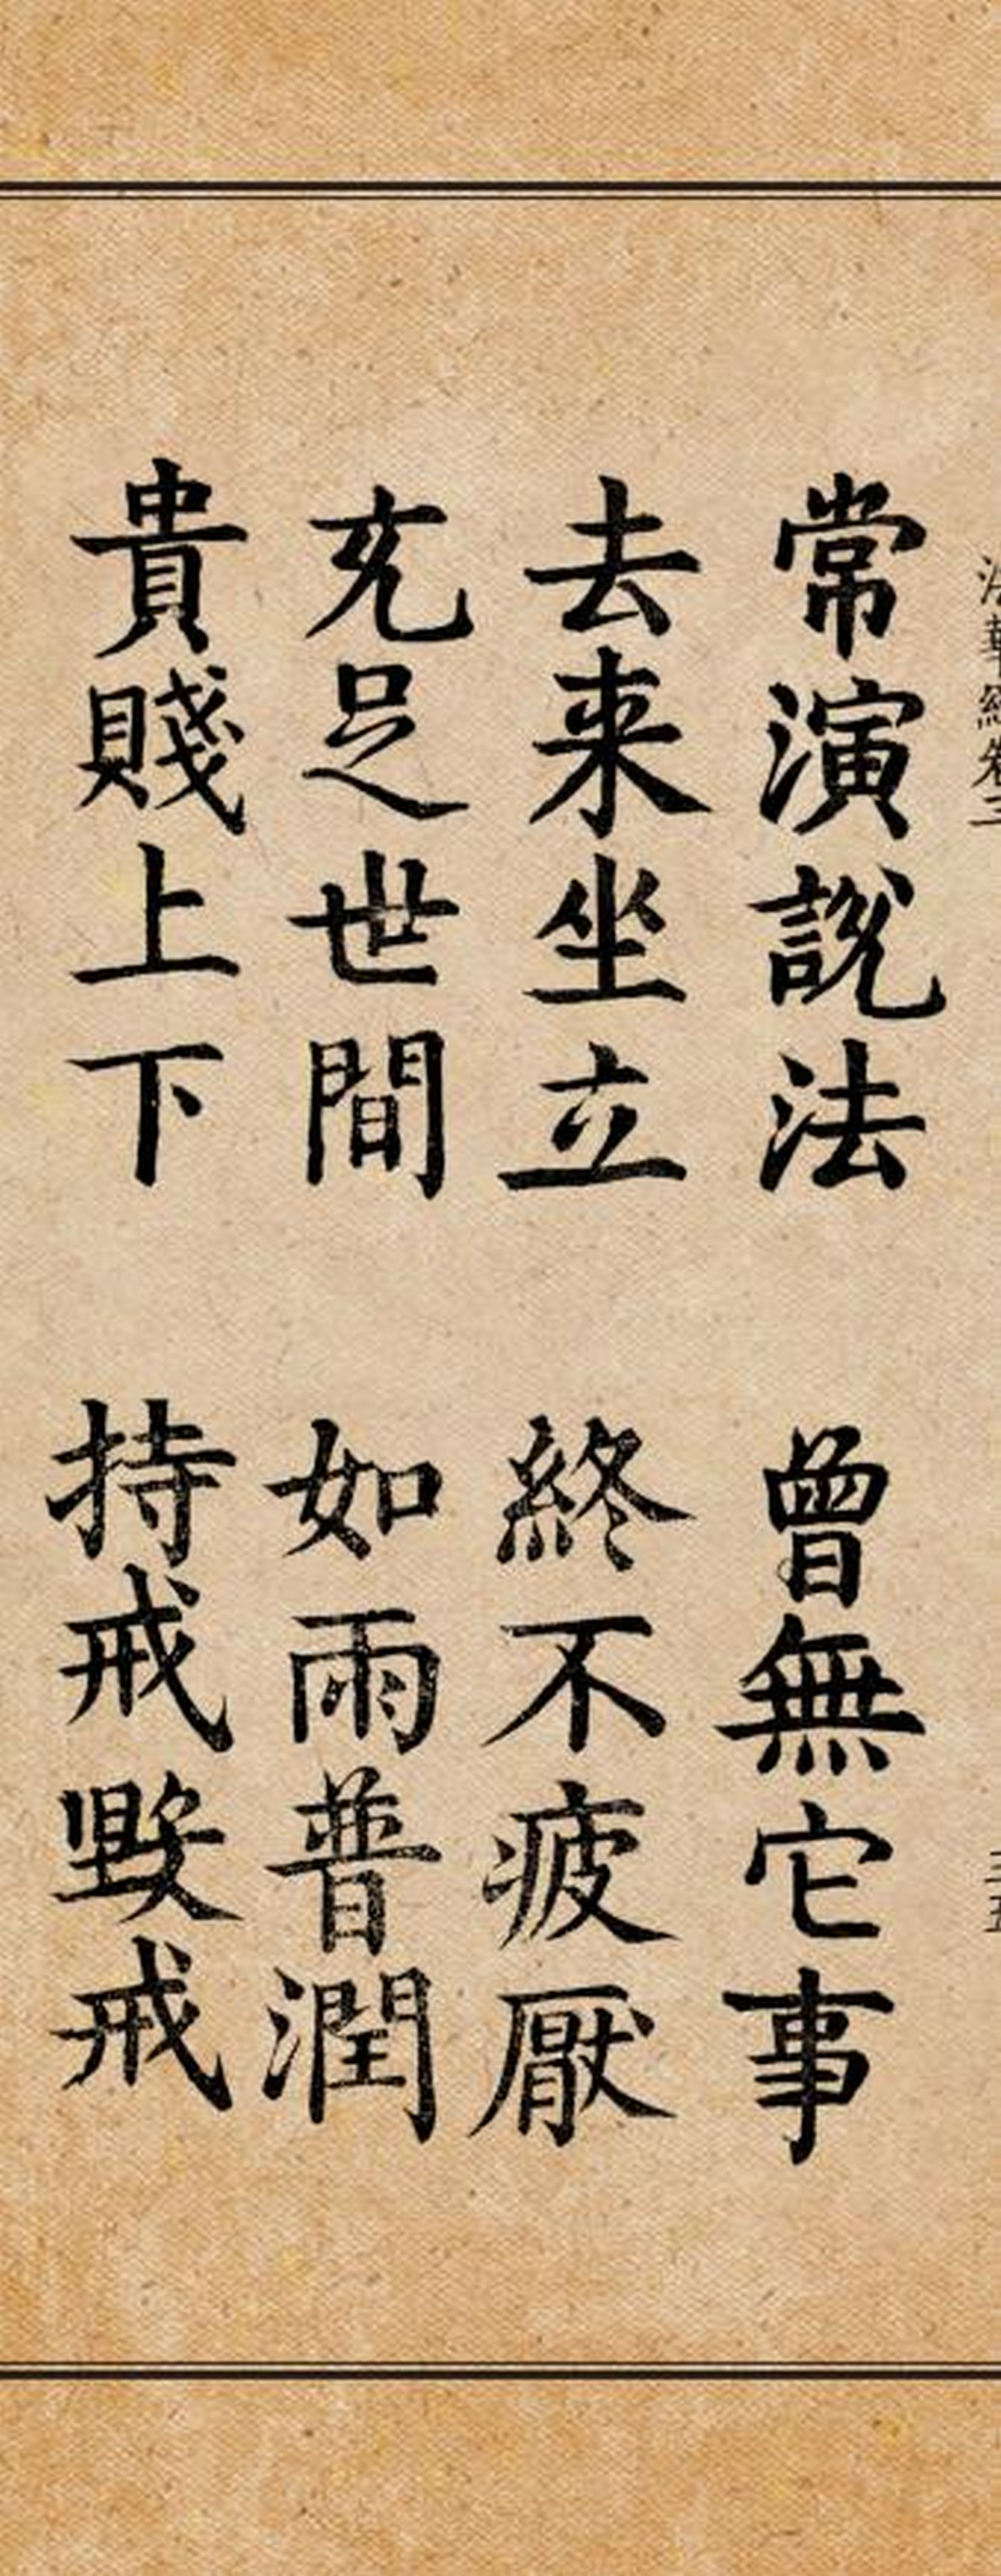 法華經卷三
常演說法 曾無它事
去来坐立 終不疲厭
充足世間 如雨普潤
貴賤上下 持戒毀戒